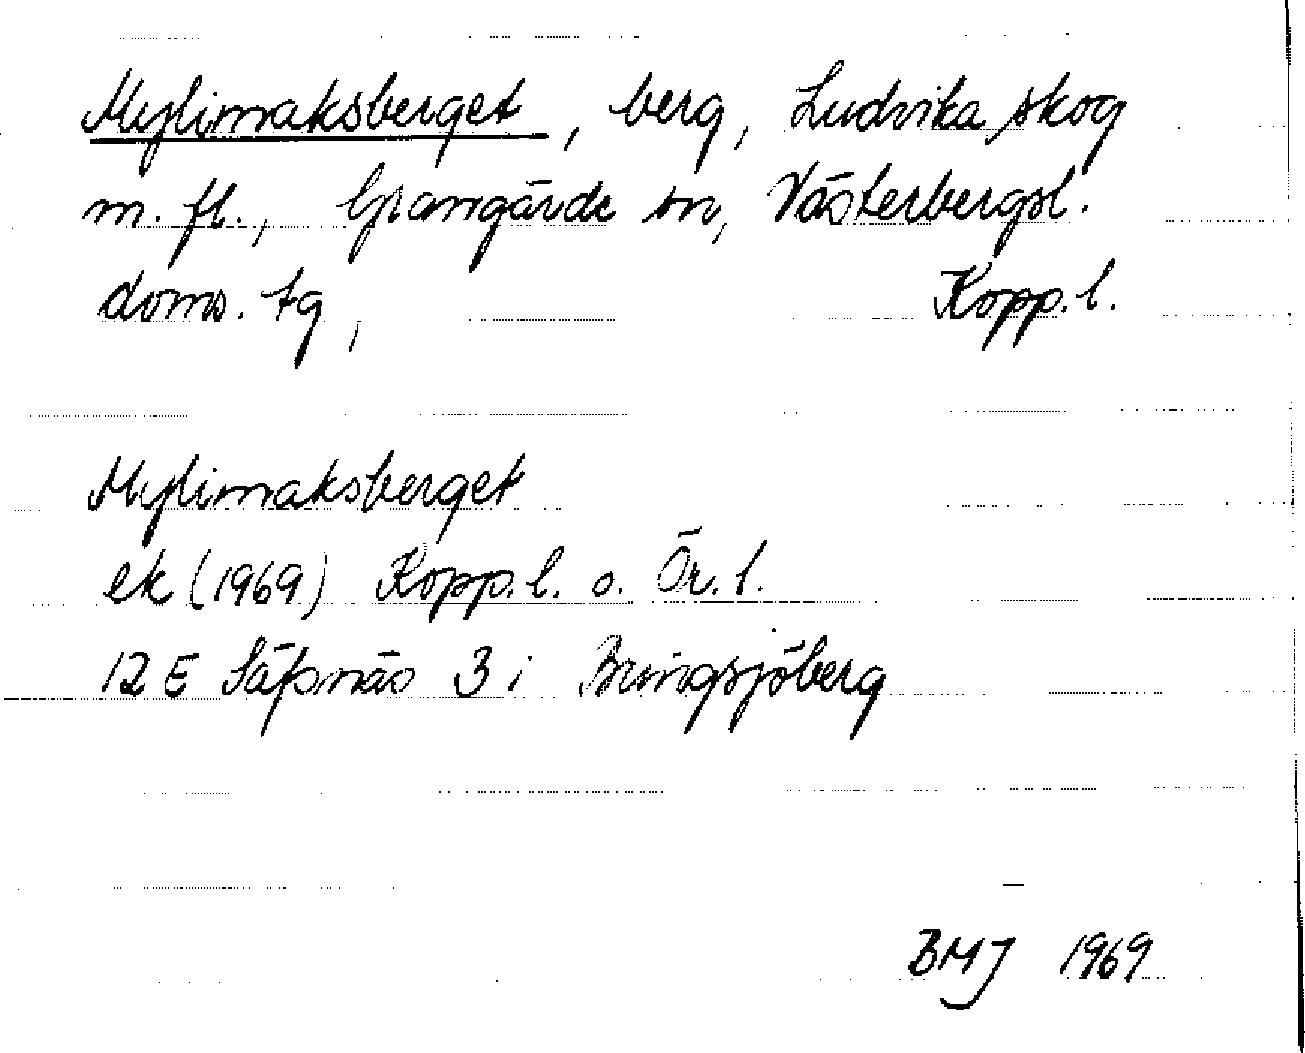 Mylimaksberget, berg, Ludvika skog
m. fl., Grangärde sn, Västerbergsl.
doms. tg, Kopp. l.
Mylimaksberget
ek (1969) Kopp. l. o. Ör. l.
12 E Säfsnäs 3 i Bringsjöberg
BMJ 1969